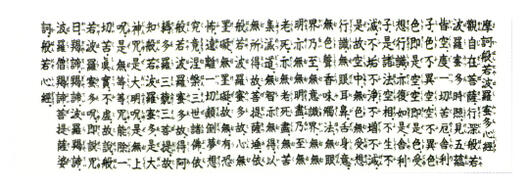 摩訶般若波羅蜜多心経
観自在菩薩行深般若
波羅蜜多時照見五蘊
皆空度一切苦厄舎利
子色不異空空不異色
色即是空空即是色受
想行識亦復如是舎利
子是諸法空相不生不
滅不垢不浄不増不減
是故空中無色無受想
行識無眼耳鼻舌身意
無色声香味触法無眼
界乃至無意識界無無
明亦無無明尽乃至無
老死亦無老死尽無苦
集滅道無智亦無得以
無所得故菩提薩埵依
般若波羅蜜多故心無
罣礙無罣礙故無有恐
怖遠離一切顛倒夢想
究竟涅槃三世諸仏依
般若波羅蜜多故得阿
耨多羅三藐三菩提故
知般若波羅蜜多是大
神呪是大明呪是無上
呪是無等等呪能除一
切苦真実不虚故説般
若波羅蜜多呪即説呪
曰羯諦羯諦波羅羯諦
波羅僧羯諦菩提薩婆
訶般若心経